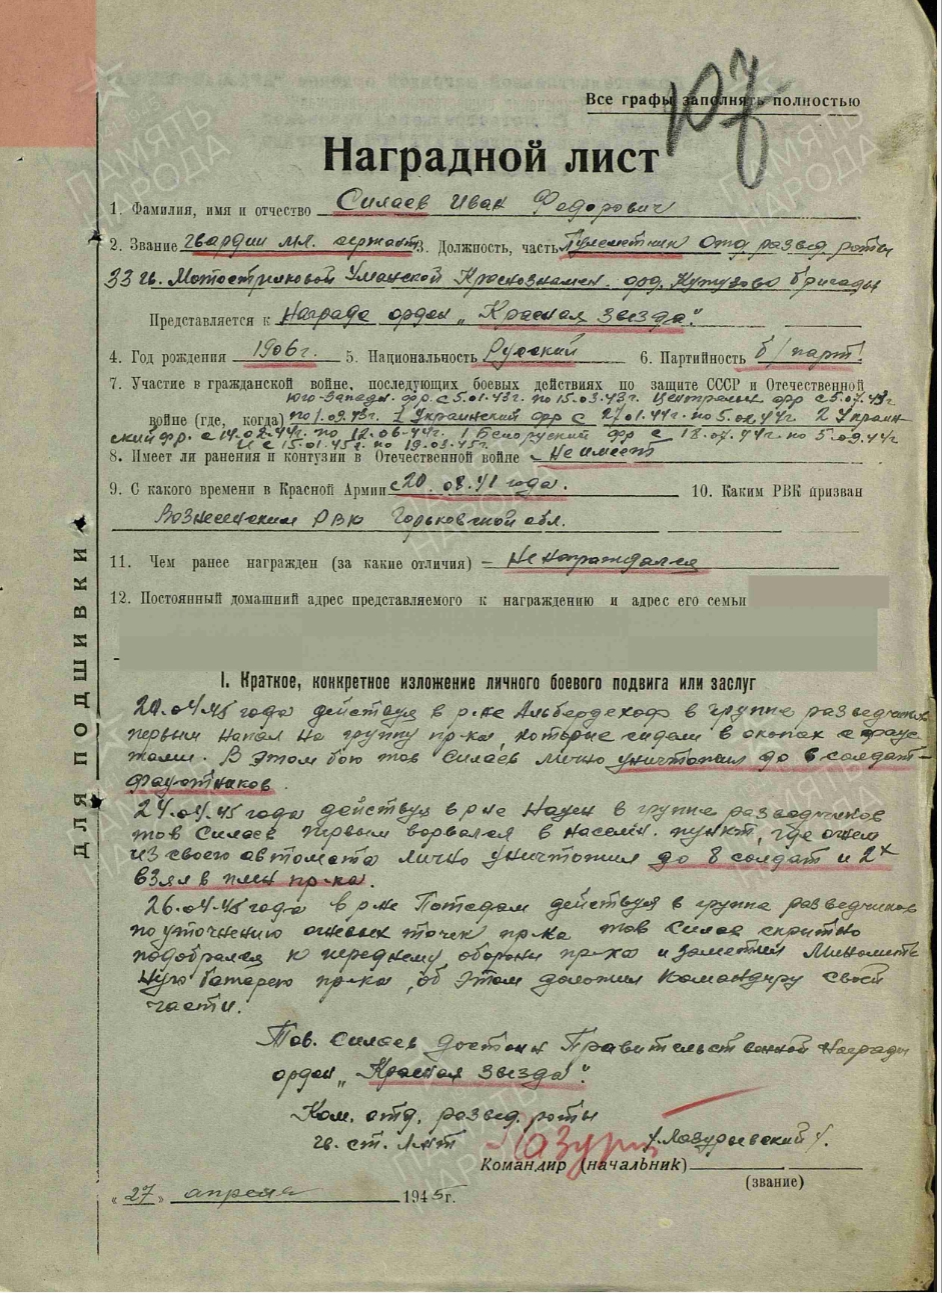 107
Все графы заполнять полностью
Наградной лист
1. Фамилия, имя и отчество Силаев Иван Федорович
2. Звание Гвардии мл. сержант 3. Должность, часть Пулеметчик отд развед роты
33 гв. Мотострелковой Уманской Краснознамен. орд. Кутузова бригады
Представляется к Награде орден „Красная звезда".
4. Год рождения 1906 г. 5. Национальность Русский 6. Партийность б/парт.
7. Участие в гражданской войне, последующих боевых действиях по защите СССР и Отечественной
Юго-Западн. фр. с 5.01.43г. по 15.03.43г. Центральн фр с 5.07.43г
войне (где, когда) по 1.09.43г. I Украинский фр с 27.01.44г. по 5.02.44г. 2 Украин-
ский фр. с 14.02.44г. по 12.06.44г. 1 Белоруский фр с 18.07.44г. по 5.09.44г
и с 15.01.45г. по 19.03.45г.
8. Имеет ли ранения и контузии в Отечественной войне - Не имеет
9. С какого времени в Красной Армии с 20.08.41 года. 10. Каким РВК призван
Вознесенским РВК Горьковской обл.
11. Чем ранее награжден (за какие отличия) – Не награждался
12. Постоянный домашний адрес представляемого к награждению и адрес его семьи
I. Краткое, конкретное изложение личного боевого подвига или заслуг
04.45 года действуя в р-не в группе разведчиков
первым напал на группу пр-ка, которые сидели в окопах с фаус-
тами. В этом бою тов Силаев лично уничтожил до 6 солдат-
фаустников.
24.04.45 года действуя в р-не Науен в группе разведчиков
тов Силаев первым ворвался в населен. пункт, где огнем
из своего автомата лично уничтожил до 8 солдат и 2х
взял в плен пр-ка.
26.04.45 года в р-не Потсдам действуя в группе разведчиков
по уточнению огневых точек пр-ка тов Силаев скрытно
подобрался к переднему обороны пр-ка и заметил Минометн-
ную батарею пр-ка, об этом доложил командиру своей
части.
Тов. Силаев достоин Правительственной Награды
орден „Красная Звезда".
Ком. отд. развед. роты
гв. ст. Л-нт /Лазурьевский/.
Командир (начальник)
(звание)
«27» апреля 1945 г.
ДЛЯ ПОДШИВКИ
ПАМЯТЬ НАРОДА